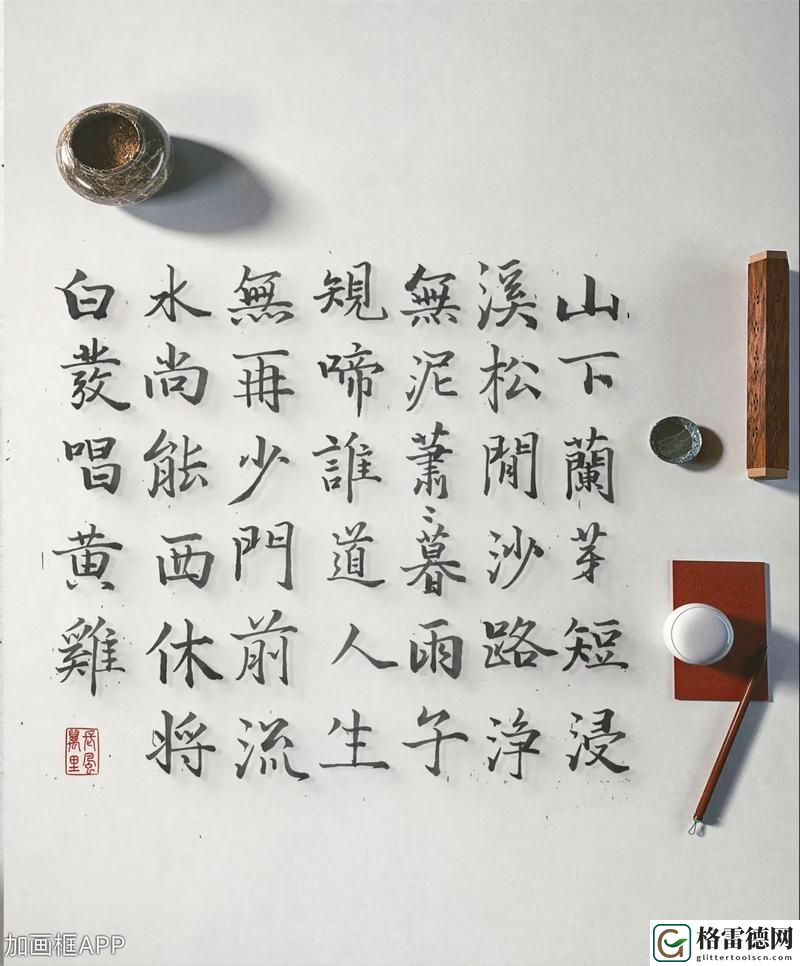 山下蘭芽短浸
溪松閒沙路淨
無泥蕭〻暮雨子
規啼誰道人生
無再少門前流
水尚能西休將
白發唱黃雞
長風萬里
加画框APP
格雷德网
glittertoolscn.com